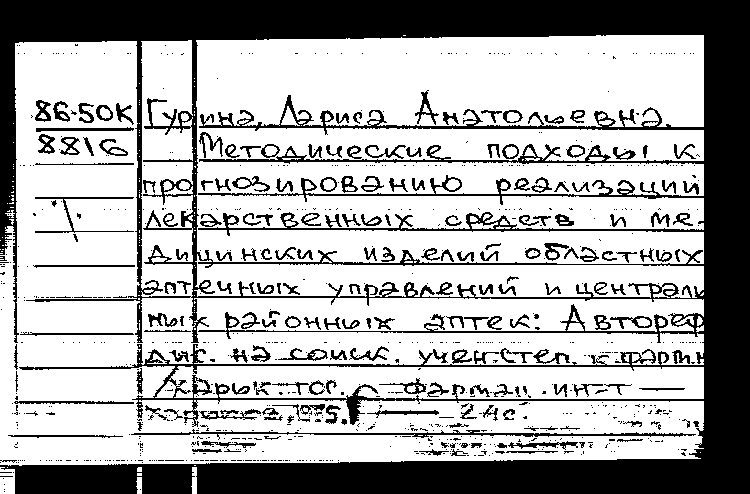 86-50К Гурина, Лариса Анатольевна.
8816 Методические подходы к
прогнозированию реализации
лекарственных средств и ме-
дицинских изделий областных
аптечных управлений и централь
ных районных аптек: Автореф
дис. на соиск. учен. степ. к. фарм. н
/Харьк. гос. фармац. ин-т —
24с.